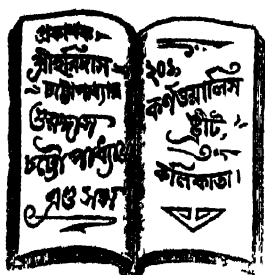 প্রকাশক।
শ্রীহরিদাস
চট্টোপাধ্যায়
গুরুদাস
চট্টোপাধ্যায়
এণ্ড সন্স
২০১,
কর্ণওয়ালিস
ষ্ট্রীট,
কলিকাতা।